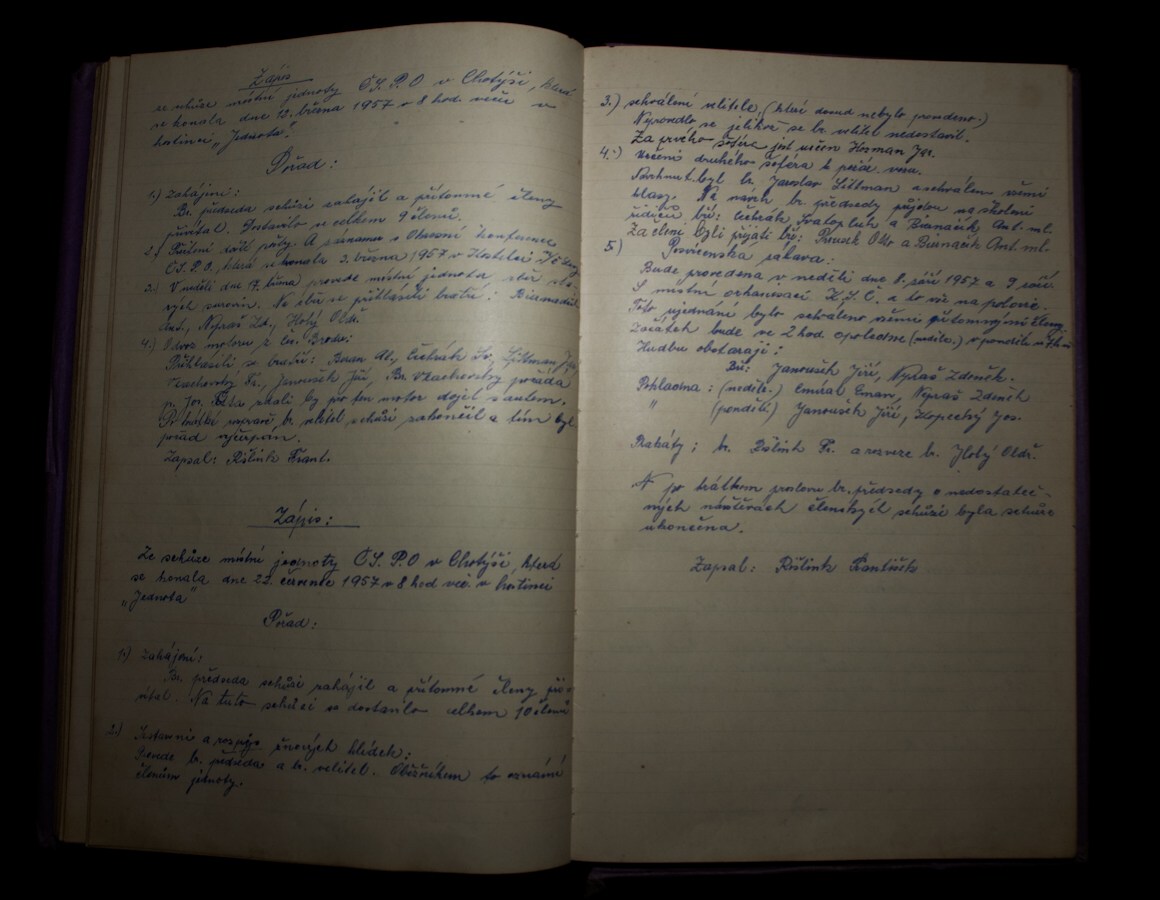 Zápis
ze schůze místní jednoty ČS. P.O v Chotýši, která
se konala dne 12. března 1957 v 8 hod. veče v
hostinci „Jednota".
Pořad:
1.) Zahájení:
Br. předseda schůzi zahájil a přítomné členy
přivítal. Dostavilo se celkem 9 členů.
2.) došlé pošty. A seznámen s Okresní konference
ČS. P.O, která se konala 3. března 1957 v Kostelci
3.) V neděli dne 7. provede místní jednota sběr sta-
rých surovin. Na sběr se přihlásili bratři:
Ant., Nypraš Zd., Hobý Oldř.
4.) Odvoz motoru z Čes. Brodu:
Přihlásili se bratři: Beran Al., Čihák Sv., Littman Jar.
Vrachovský Fr., Janoušek Jiří, Br. Vrachovský požádá
p. Jos. zdali by pro ten motor dojel s autem.
Po krátké br. velitel schůzi zakončil a tím byl
pořad vyčerpán.
Zapsal: Rišlink Frant.
Zápis:
Ze schůze místní jednoty ČS. P.O v Chotýši, která
se konala dne 22. července 1957 v 8 hod več. v hostinci
„Jednota"
Pořad:
1.) Zahájení:
Br. předseda schůzi zahájil a přítomné členy při-
vítal. Na tuto schůzi se dostavilo celkem 10 členů
2.) Sestavení a rozpis žňových hlídek:
Provede br. předseda a br. velitel. Oběžníkem to oznámí
členům jednoty.
3.) schválení velitele, (které domd nebylo provedeno.)
Neprovedlo se jelikož se br. velitel nedostavil.
Za prvého šoféra jest určen Hosman Jar.
4.) Určení druhého šoféra k požár. vozu.
Navrhnut byl br. Jaroslav Littman a schválen všemi
hlasy. Na návrh br. předsedy půjdou na školení
řidičů bři: Čihák Svatopluk a Ant. ml.
Za členi byli přijati bři: Oldř a Ant. ml.
5.) Posvícenská zábava:
Bude provedena v neděli dne 8. září 1957 a 9 září
S místní organisací K.S.Č. a to vše na polovic.
Toto ujednání bylo schváleno všemi přítomnými členy.
Začátek bude ve 2 hod odpoledne (neděle.) v pondělí
Hudbu obstarají:
Bří: Janoušek Jiří, Nypraš Zdeněk.
Pokladna: (neděle.) Eman, Nypraš Zdeněk
" (pondělí.) Janoušek Jiří, Klopecký Jos.
Rabáty: br. Rišlink Fr. a reserve br. Hobý Oldř.
A po krátkém proslovu br. předsedy o nedostateč-
ných návštěvách členských schůzí byla schůze
ukončena.
Zapsal: Rišlink František